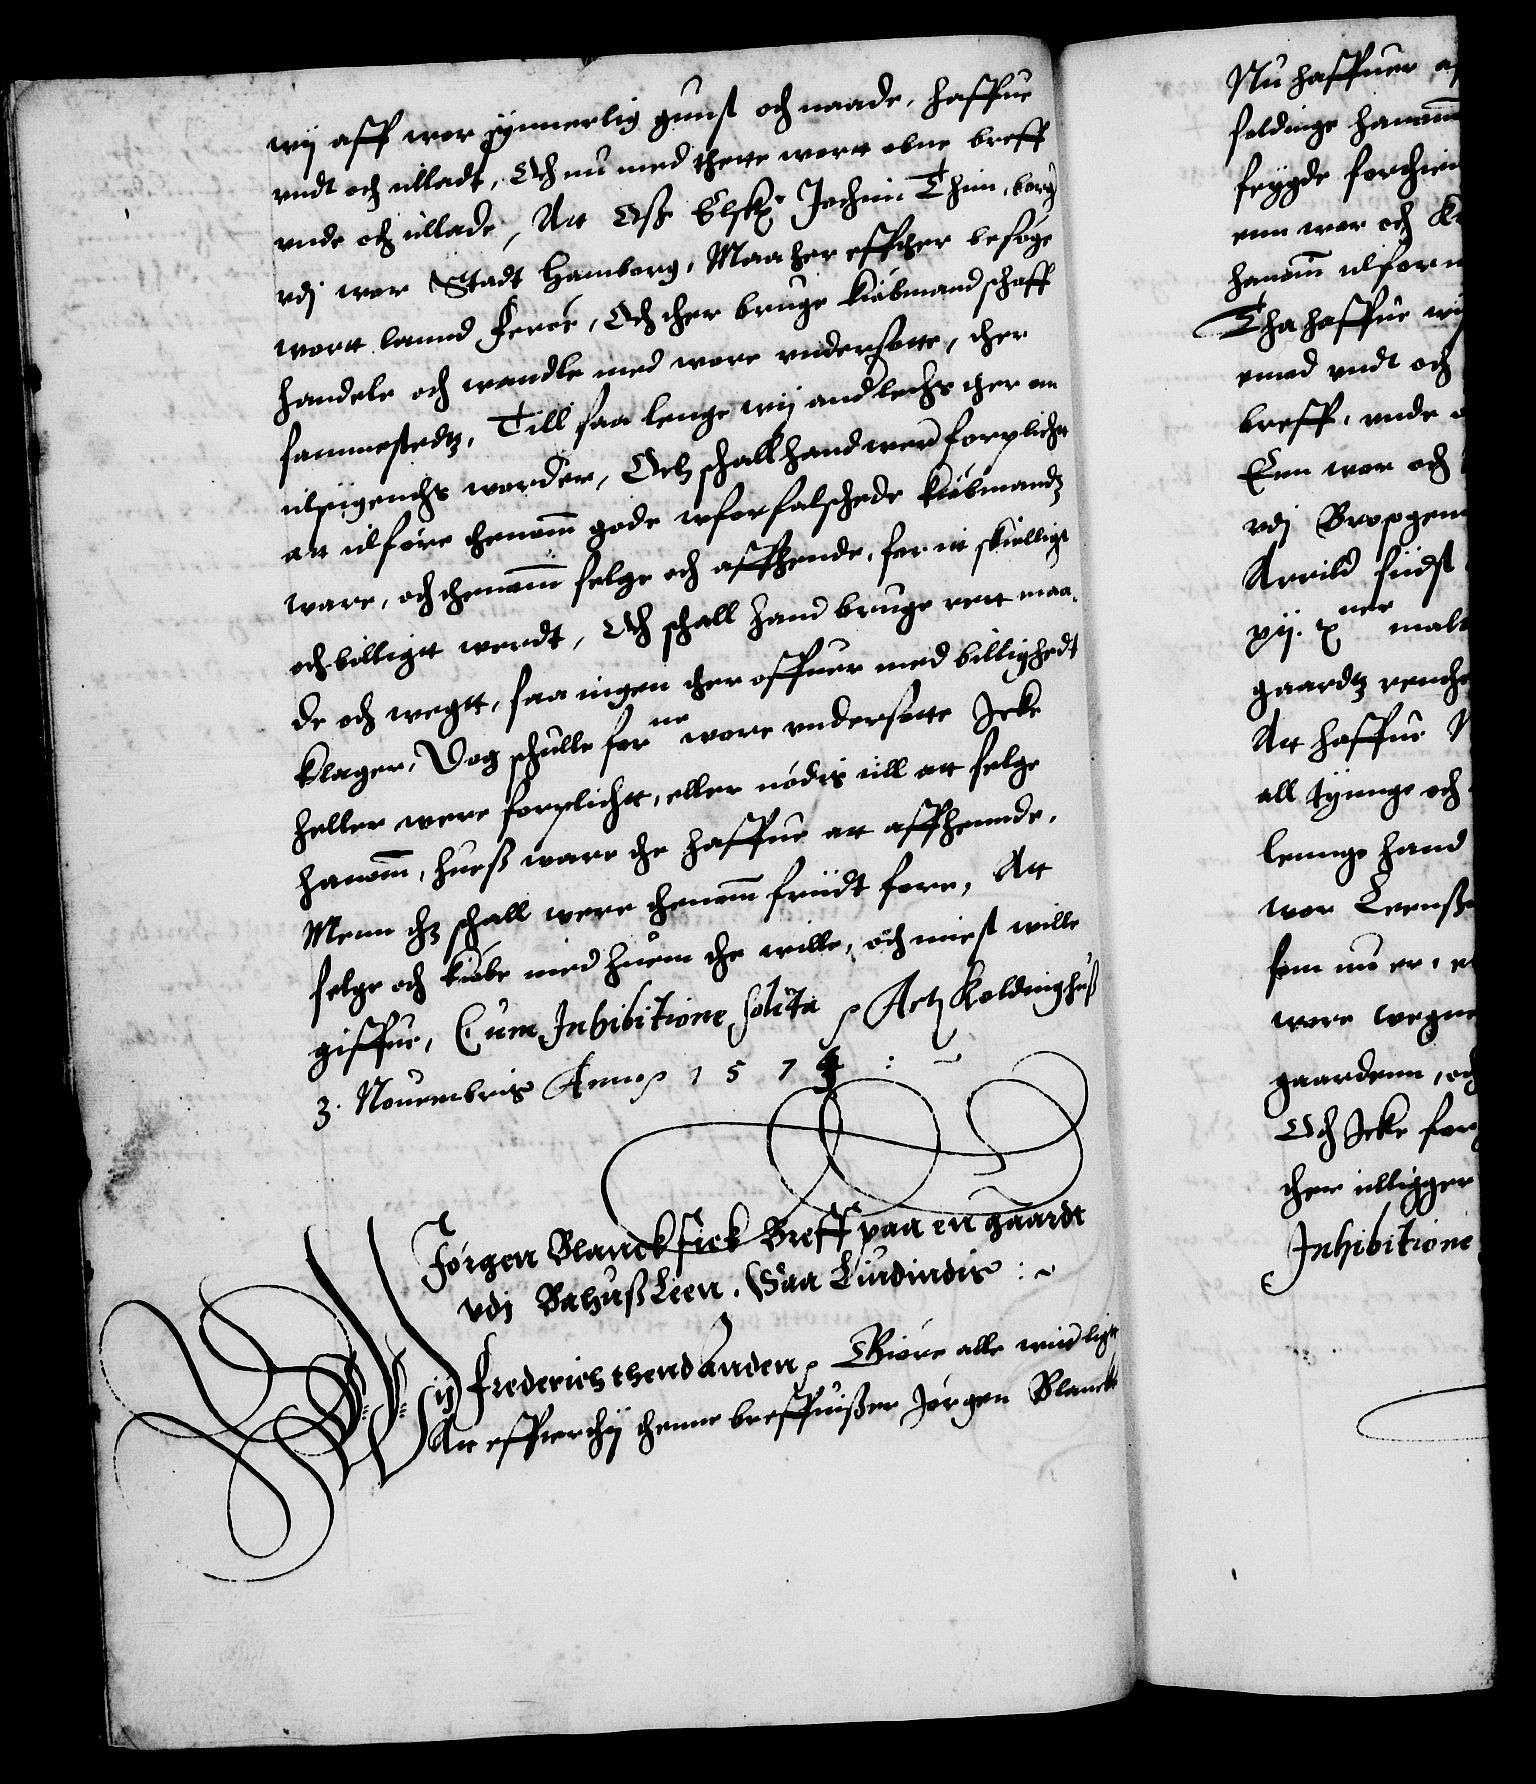 wij aff wor synnerlig gunst och naade, haffue
undt och tilladt, Och nu med thette wortt obne breff
unde och tillade, Att Oss Elske Jochim Thim, borg
udj wor Stadt Hamborg, Maa her effther besøge
wortt lannd Feroe, Och ther bruge kiøbmandschaff
handele och wandle med wore undersatte, ther
sammestedz, Till saa lenge wij anderlediis ther om
tilsigendis worder, Och schall hand were forplichtt
att tilføre thenom gode uforfalschede kiøbmandz
ware, och thenom selge och affhende, for itt skielligt
och billigtt werdt, Och schall hand bruge rett maa,
de och wegtt, saa ingen ther offuer med billighedt
klager, Dog schulle forne wore undersatte Icke
heller were forplichtt, eller nødis till att selge
hanom, huess ware the haffue att affhennde,
Menn thz schall were thenom friidt fore, Att
selge och kiøbe med huem the wille, och miest wille
giffue, Cum Inhibitione solita p Actz Koldinghuss
3. Nouembris Anno p 1574 :
Jørgen Blanck fick Breff paa en gaardt
udj Bahuss Leen. Saa Liudindis : ~
Wij Frederich thend Anden p Giøre alle witterligtt
Att effterthij thenne breffuisser Jørgen Blanck
Nu haffuer a
holdinge hanom
feygde forthien
enn wor och K
hanom tilforn
Tha haffue wij
emod undt och
breff, unde
Een wor och
udj Brosogen
Arrild siidst
xij. t ner malt
gaardtz renthe
Att haffue N
all tynnge och
lennge hand
wor Leenss
som nu er, e
wore wegne
gaardenn, och
Och Icke for
ther tilligger
Inhibitione